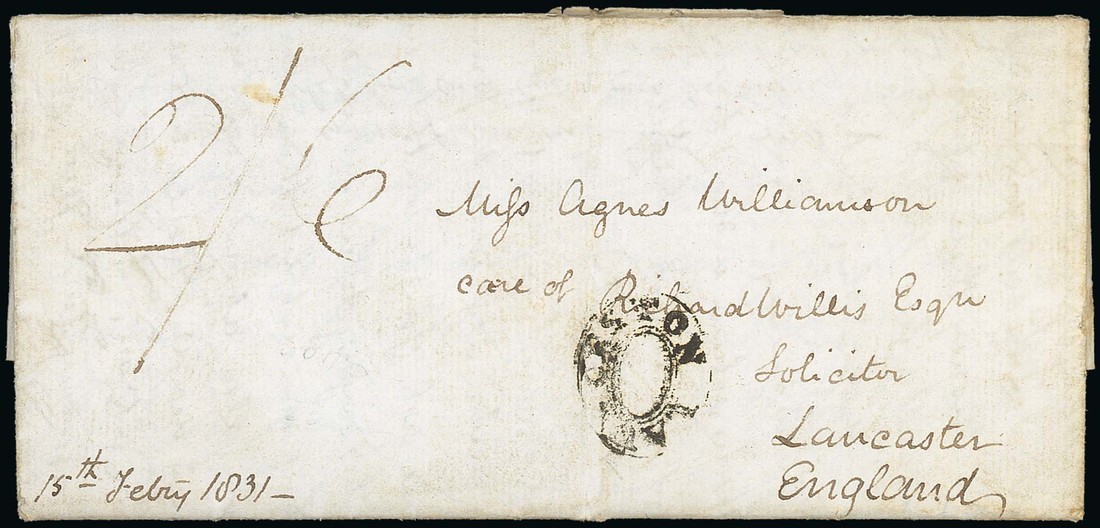 2/6
Miss Agnes Williamson
care of Richard Willis Esqr
Solicitor
Lancaster
England
15th Febry 1831